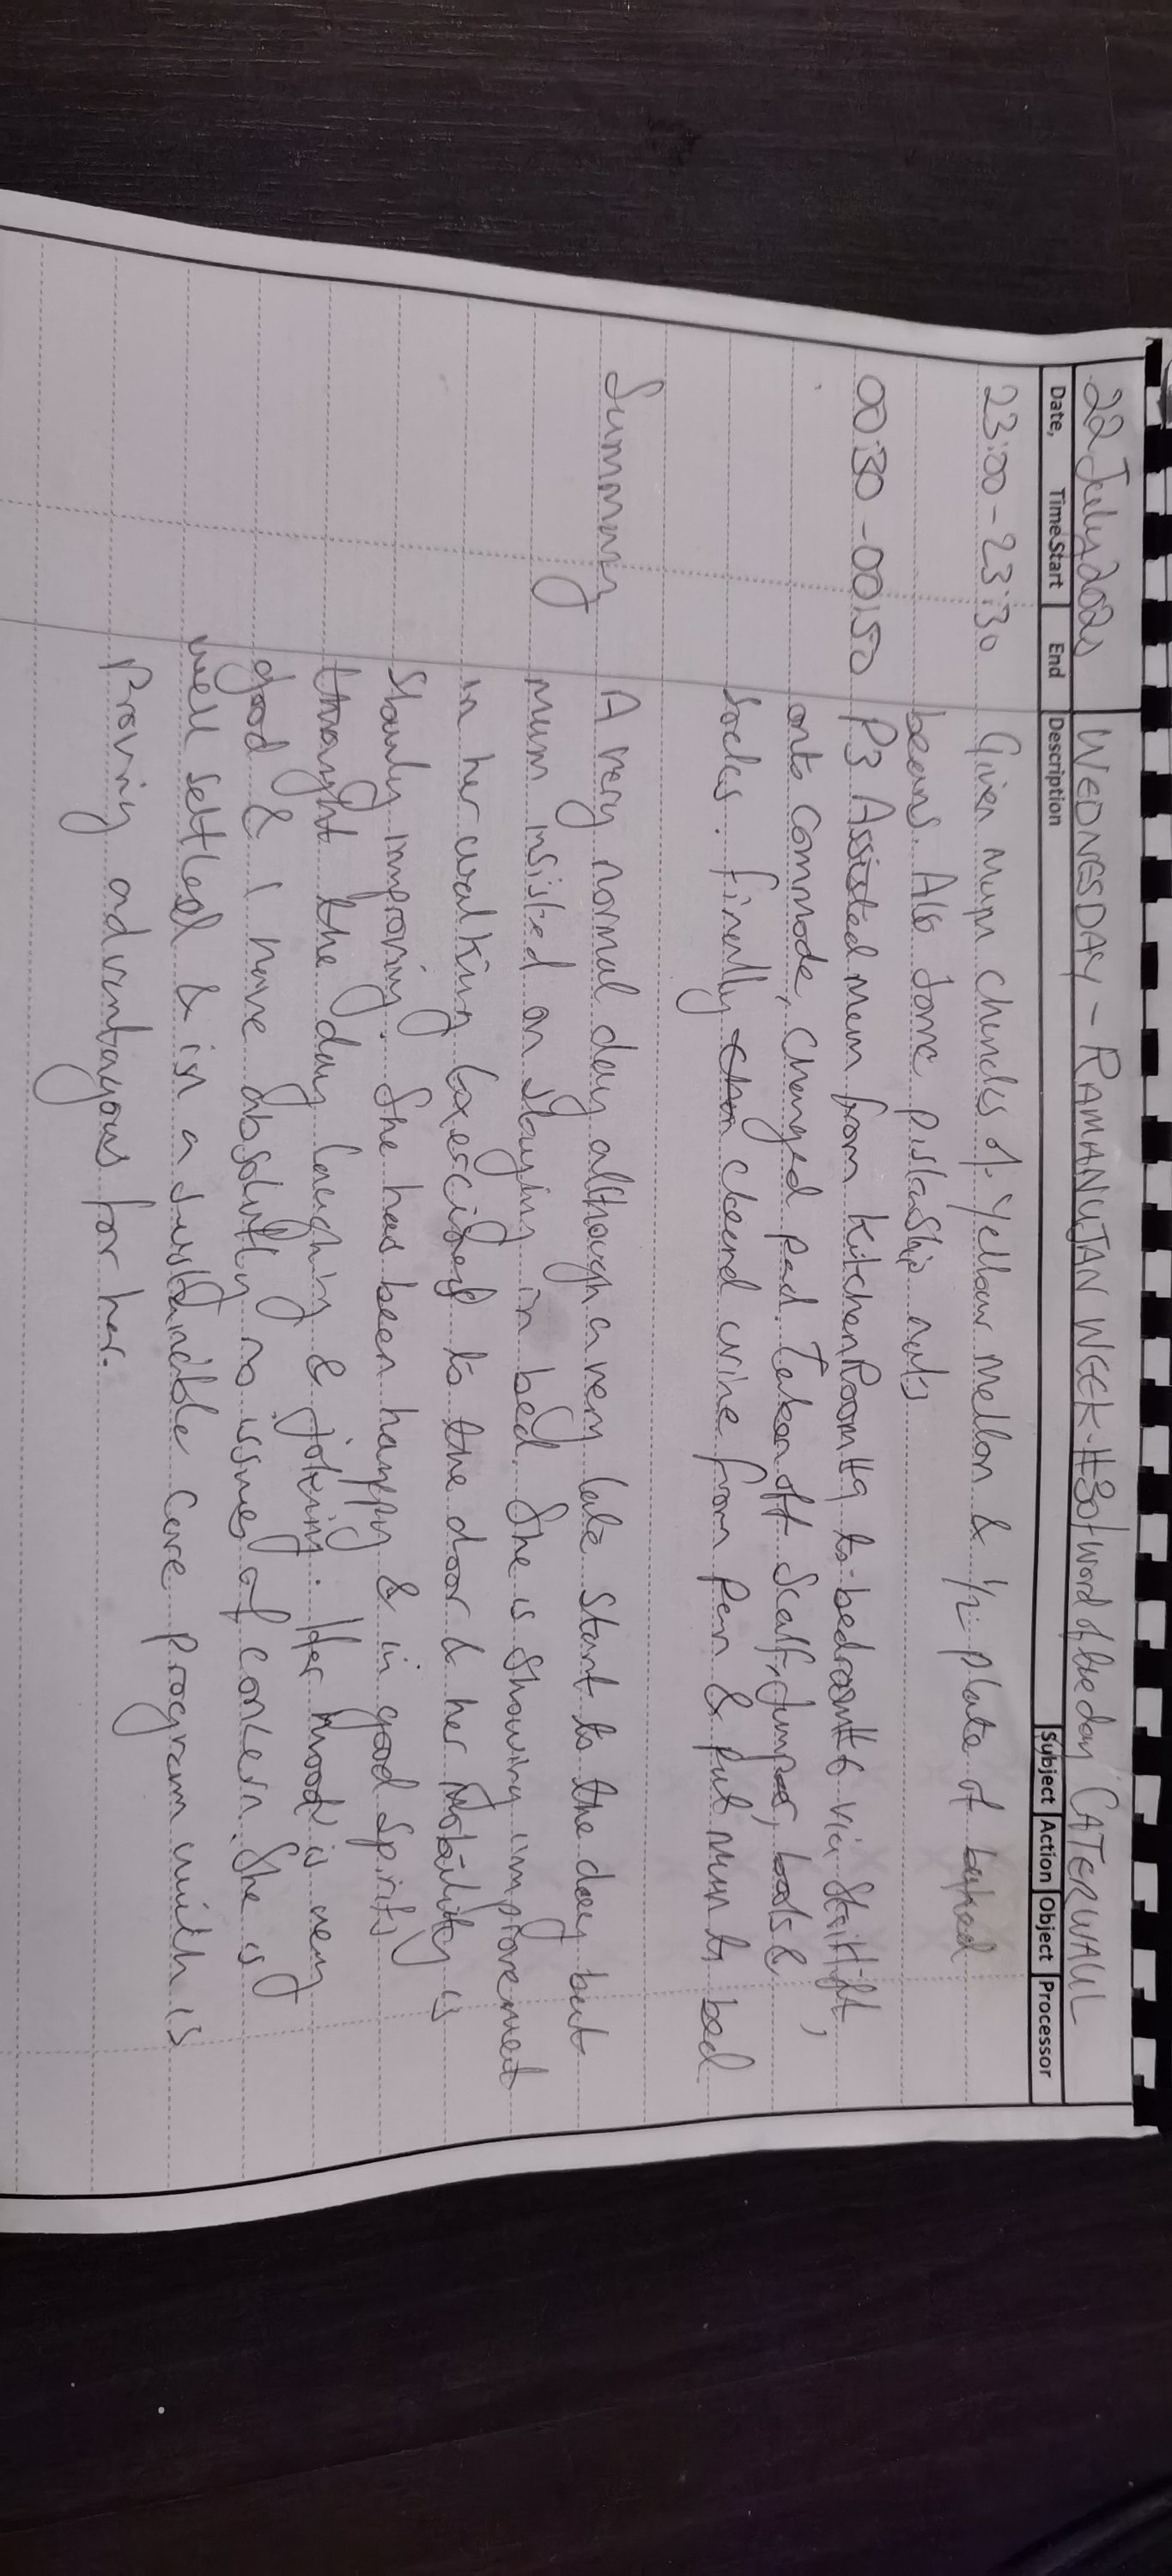 22 July 2020 WEDNESDAY - RAMANUJAN WEEK #30/ word of the day CATERWAUL
Date, Time Start End Description Subject Action Object Processor
23:00 - 23:30 Given mum chuncks of yellow mellon & 1/2 plate of
beans. Also some nuts
00:30 - 00:50 P3 Assisted mum from kitchen Room #9 to bedroom #6 via Stairlift,
onto commode, changed pad. Taken off scarf, Jumper, boots &
socks. finally cleend urine from Pan & put mum to bed
Summary A very normal day although a very late start to the day but
mum insisted on staying in bed. She is showing improvement
in her walking (exercises) to the door & her mobility is
slowly improving. She has been happy & in good spirits
throught the day laughing & joking. Her mood is very
good & I have absolutly no issues of concern. She is
well settled & in a sustainable care program with is
Proving advantagous for her.